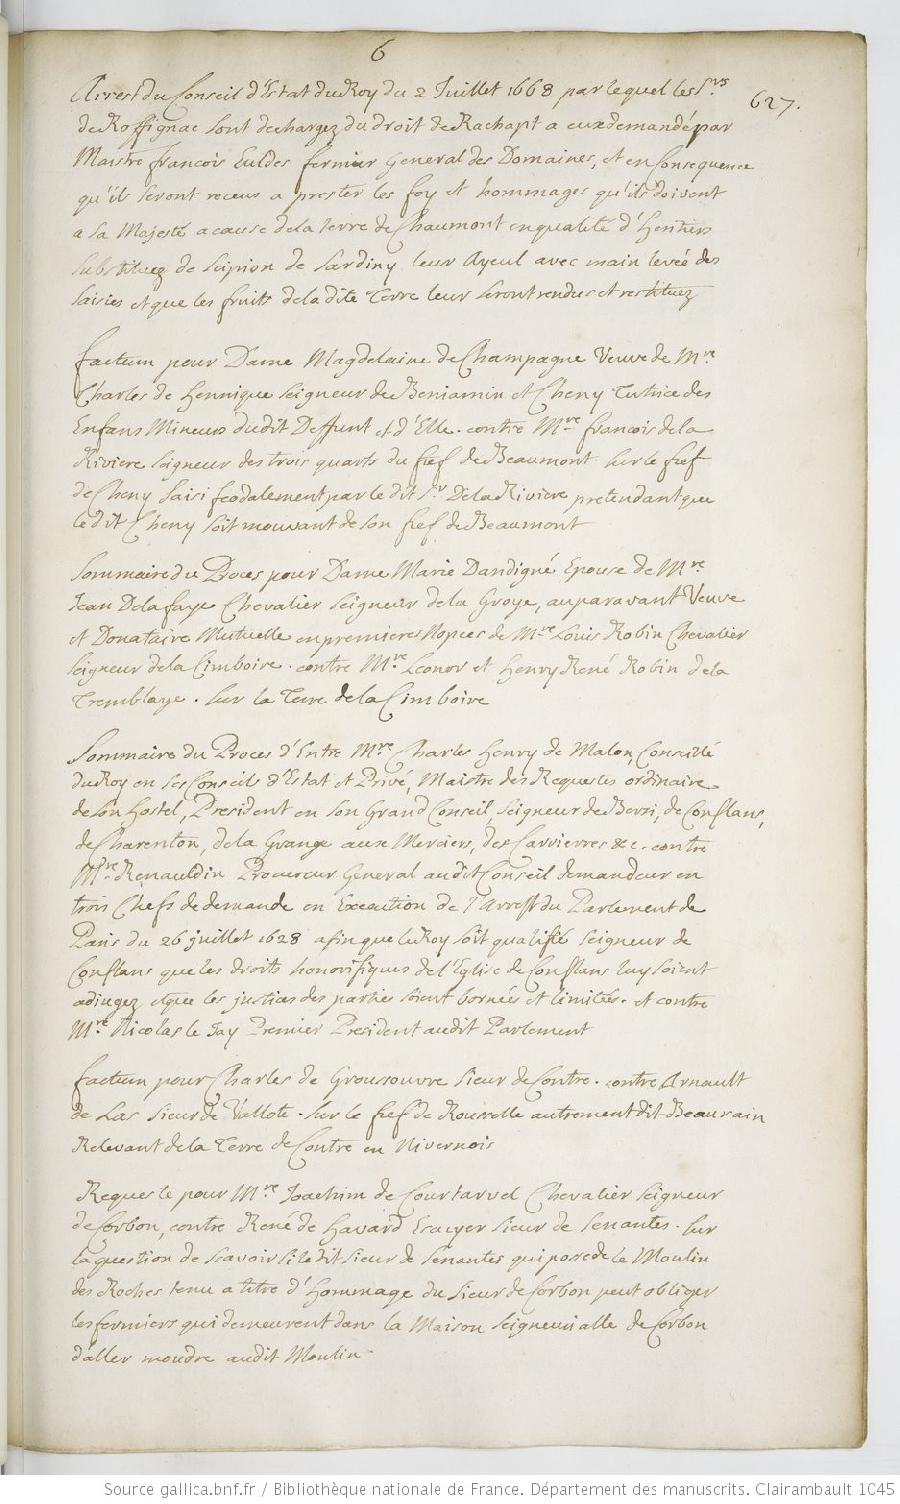 6
627.
Arrest du Conseil d'Estat du Roy du 2 Juillet 1668 par lequel les Srs
de Roffignac sont dechargez du droit de Rachapt a eux demandé par
Maistre francois Euldes fermier General des Domaines, et en Consequence
qu'ils seront receus a prester les foy et hommages qu'ils doivent
a Sa Majesté a cause de la terre de Chaumont en qualité d'Heritiers
Substituez de Scipion de Sardiny leur Ayeul avec main levée des
saisies et que les fruits de la dite Terre leur seront rendus et restituez
factum pour Dame Magdelaine de Champagne Veuve de Mre
Charles de Hennique Seigneur de Beniamin et Cheny Tutrice des
Enfans Mineurs dudit Deffunt et d'Elle. contre Mre francois de la
Riviere seigneur des trois quarts du fief de Beaumont sur le fief
de Cheny saisi feodalement par le dit Sr De la Riviere pretendant que
le dit Cheny soit mouvant de son fief de Beaumont
Sommaire du Proces pour Dame Marie Dandigné Epouse de Mre
Jean De la faye Chevalier Seigneur de la Groye, auparavant Veuve
et Donataire Mutuelle en premieres Nopces de Mre Louis Robin Chevalier
Seigneur de la Cimboire. contre Mre Leonor et Henry René Robin de la
Tremblaye. sur la Terre de la Cimboire
Sommaire du Proces d'Entre Mre Charles Henry de Malon, Conseillé
du Roy en ses Conseils d'Estat et Privé, Maistre des Requestes ordinaire
de son Hostel, President en son Grand Conseil, Seigneur de Berci, de Conflans,
de Charenton, de la Grange aux Merciers, des Carrierres &c. contre
Mre Renauldin Procureur General audit Conseil demandeur en
trois Chefs de demande en Execution de l'Arrest du Parlement de
Paris du 26 juillet 1628 afin que le Roy soit qualifié Seigneur de
Conflans que les droits honorifiques de l'Eglise de Conflans luy soient
adiugez et que les justices des parties soient bornées et limités. et contre
Mre Nicolas le Jay Premier President audit Parlement
factum pour Charles de Groussouvre Sieur de Contre. contre Arnault
de Las Sieur de Vallote. sur le fief de Rouxelle autrement dit Beaurain
Relevant de la Terre de Contre en Nivernois
Requeste pour Mre Joachim de Courtarvel Chevalier Seigneur
de Corbon, contre René de Havard Escuyer Sieur de Senantes. sur
la question de scavoir si ledit sieur de Senantes qui possede le Moulin
des Roches tenu a titre d'Hommage du sieur de Corbon peut obliger
les fermiers qui demeurent dans la Maison Seigneurialle de Corbon
d'aller moudre audit Moulin
Source gallica.bnf.fr / Bibliothèque nationale de France. Département des manuscrits. Clairambault 1045